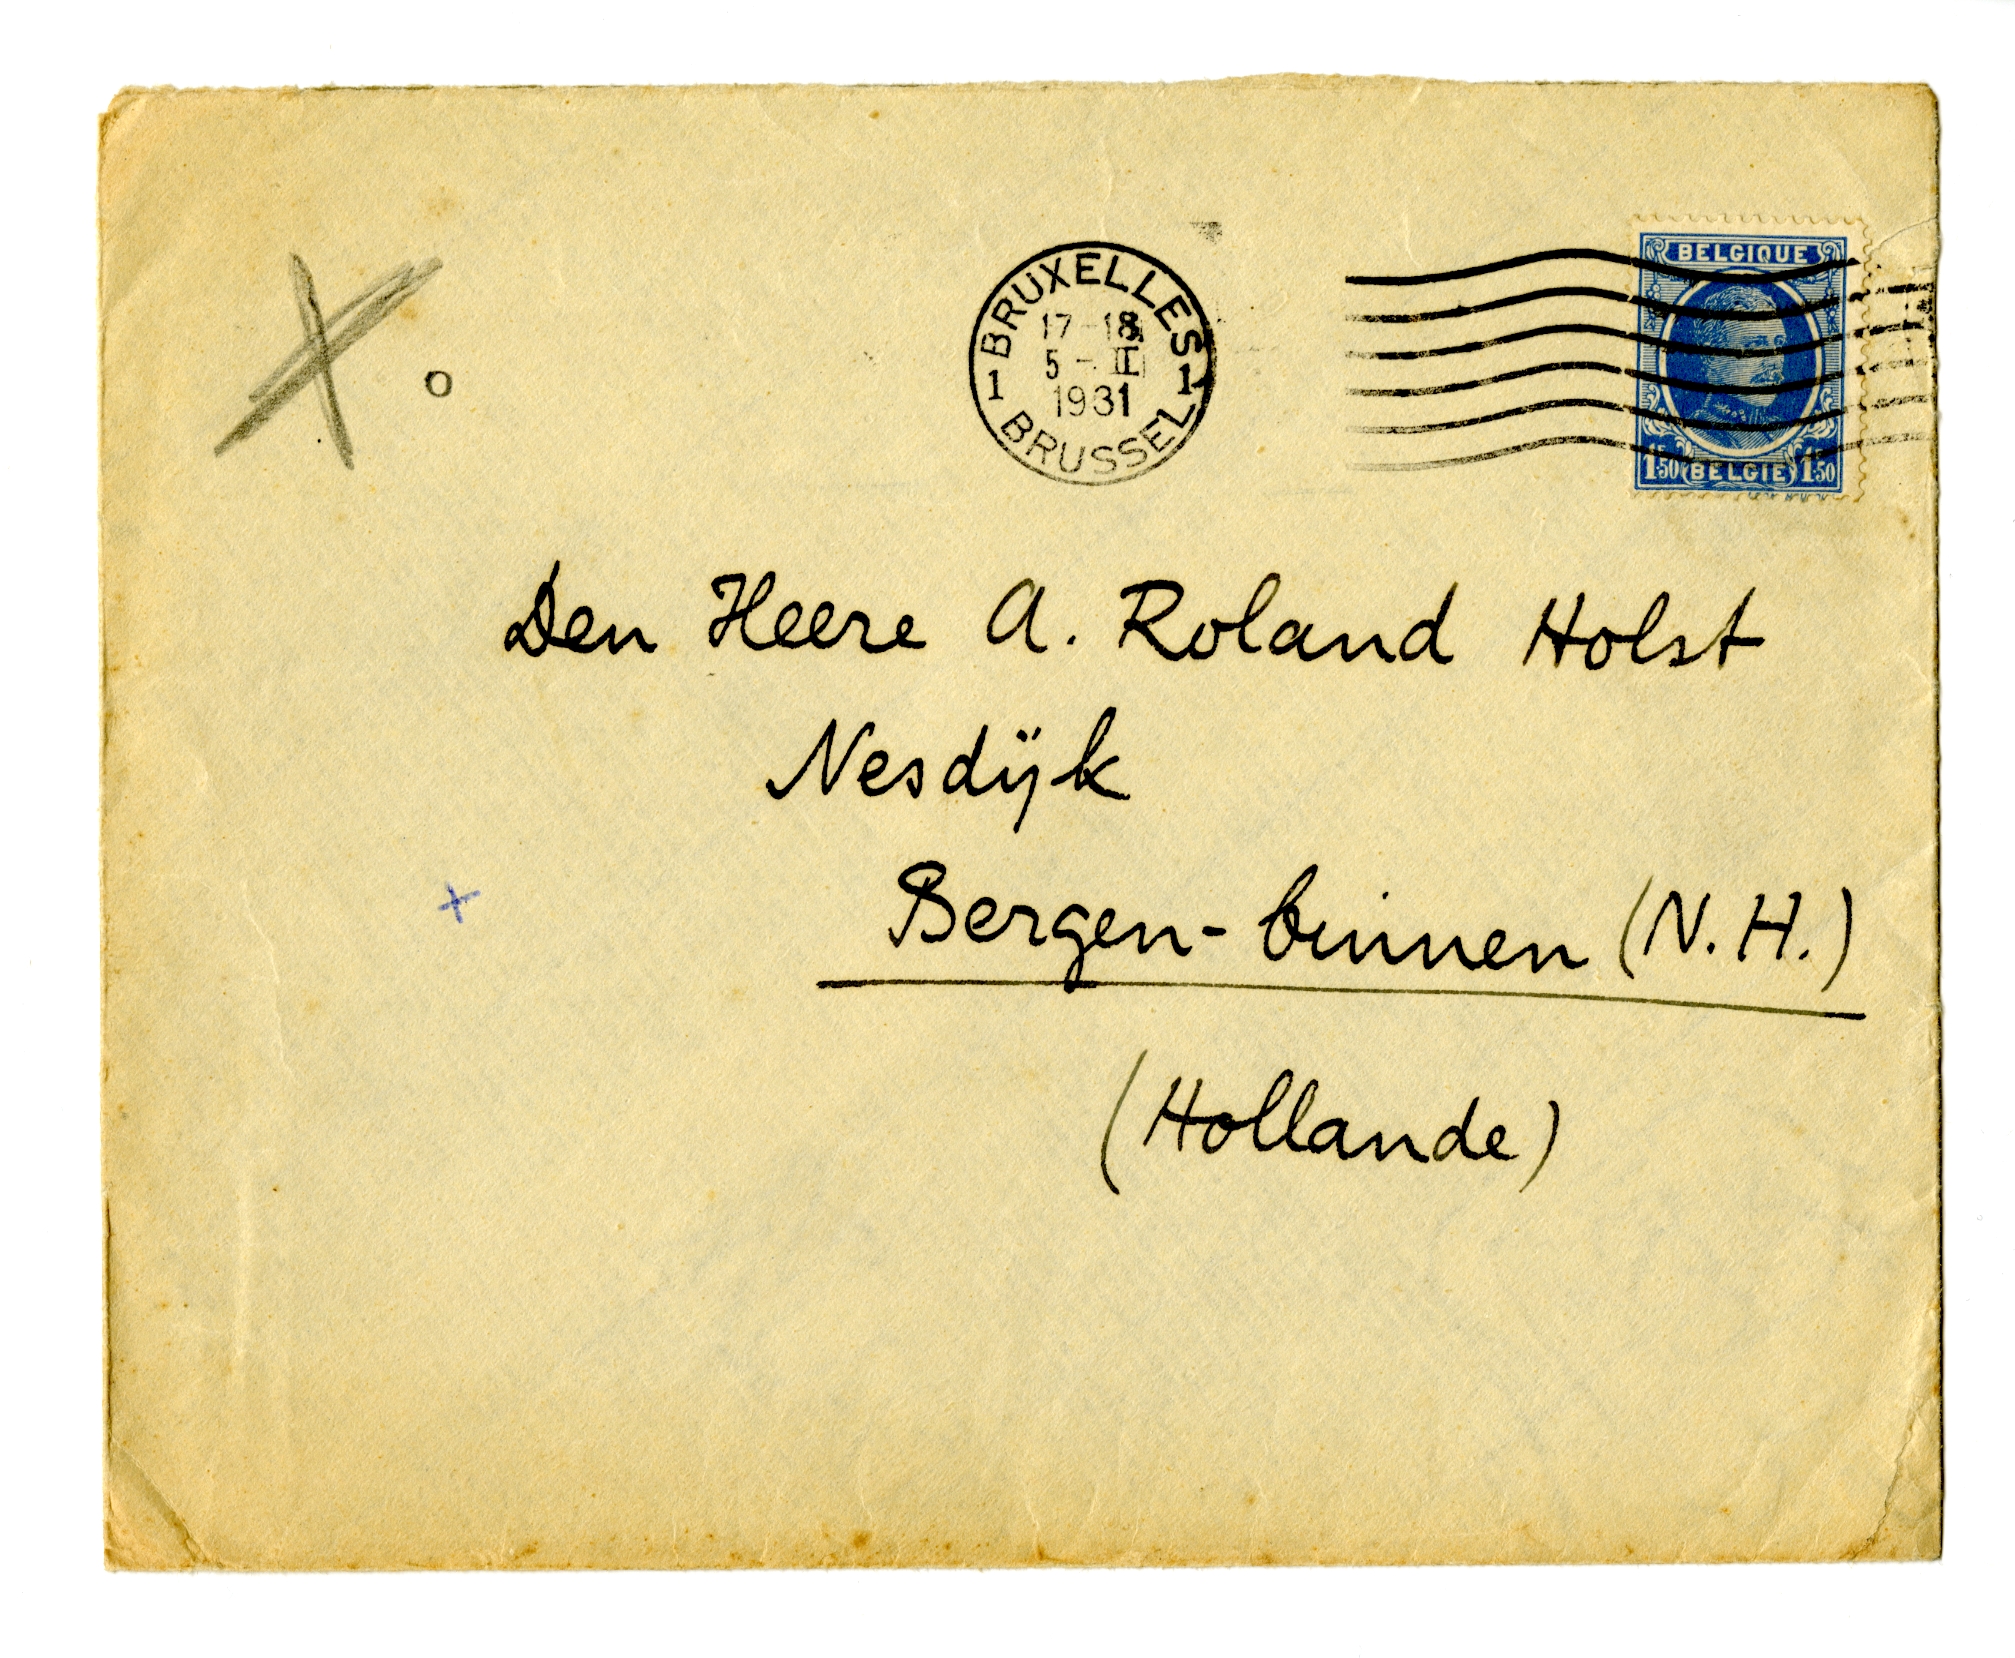 BELGIQUE
1.50 BELGIË 1.50
BRUXELLES
17-18
5 - II
1 1
1931
BRUSSEL
X o
Den Heere A. Roland Holst
Nesdijk
+
Bergen-binnen (N.H.)
(Hollande)